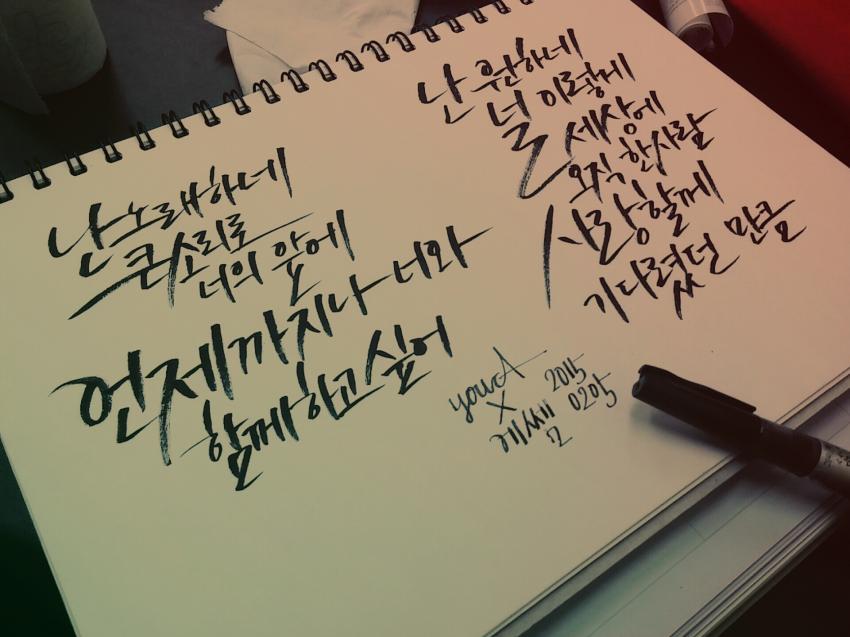 난 노래하네
큰 소리로
너의 앞에
언제까지나 너와
함께 하고 싶어
난 원하네
널 이렇게
세상에
오직 한사람
사랑할께
기다렸던 만큼
youzA
X
에쎌
2015
0205